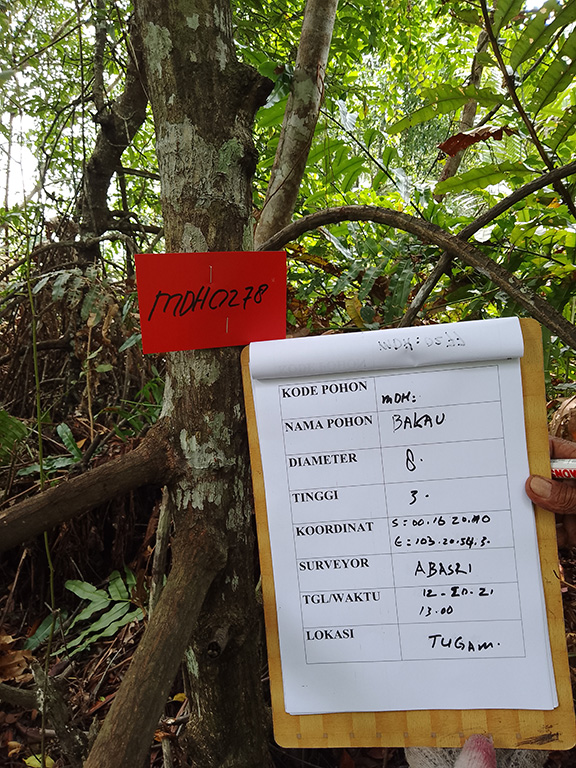 MDH0278
KODE POHON MDH:
NAMA POHON BAKAU
DIAMETER 8.
TINGGI 3.
KOORDINAT S=00.16 20.110
E=103.20.54.3.
SURVEYOR ABASRI
TGL/WAKTU 12-20.21
13.00
LOKASI TUGAM.